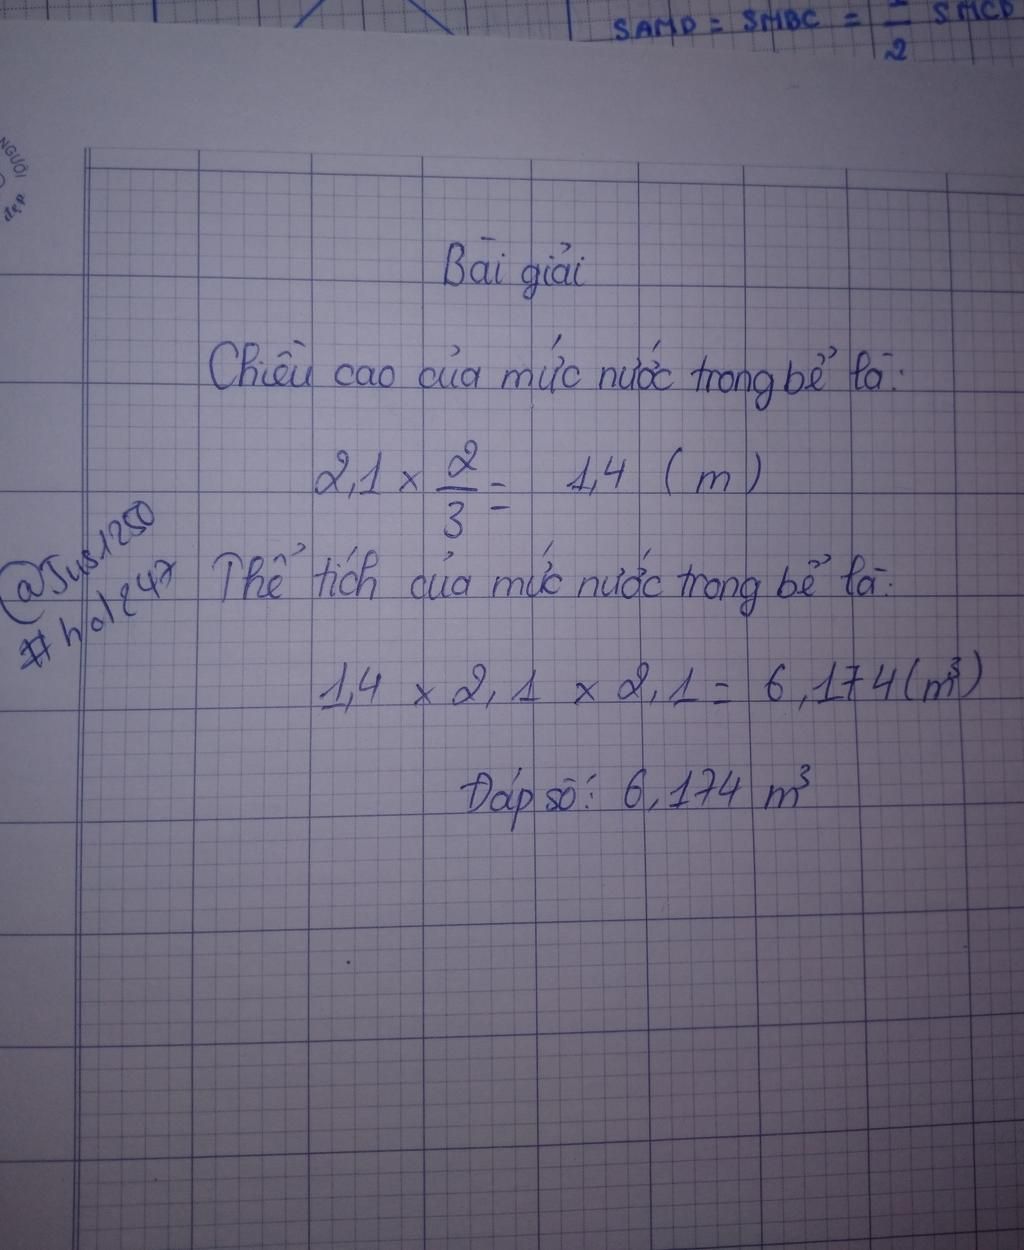 SAMD = SMBC = 2 SMCD
NGƯỜI
đẹp
Bài giải
Chiều cao của mức nước trong bể là:
2,1 × 2/3 = 1,4 (m)
@Jus1250
#hol247
Thể tích của mức nước trong bể là:
1,4 × 2,1 × 2,1 = 6,174 (m³)
Đáp số: 6,174 m³